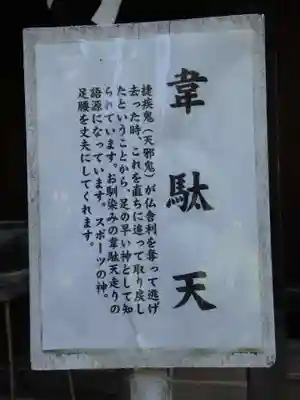 韋駄天
捷疾鬼（天邪鬼）が仏舎利を奪って逃げ
去った時、これを直ちに追って取り戻し
たということから、足の早い神として知
られています。お馴染みの韋駄天走りの
語源になっています。スポーツの神。
足腰を丈夫にしてくれます。